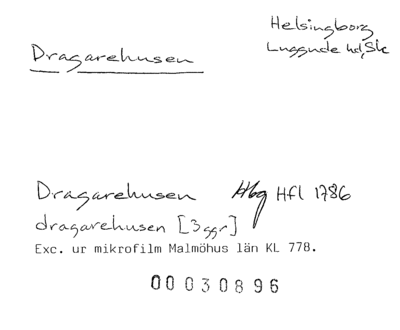 Helsingborg
Dragarehusen
Luggude hd, Sk
Dragarehusen Hbg Hfl 1786
dragarehusen [3 ggr]
Exc. ur mikrofilm Malmöhus län KL 778.
00030896